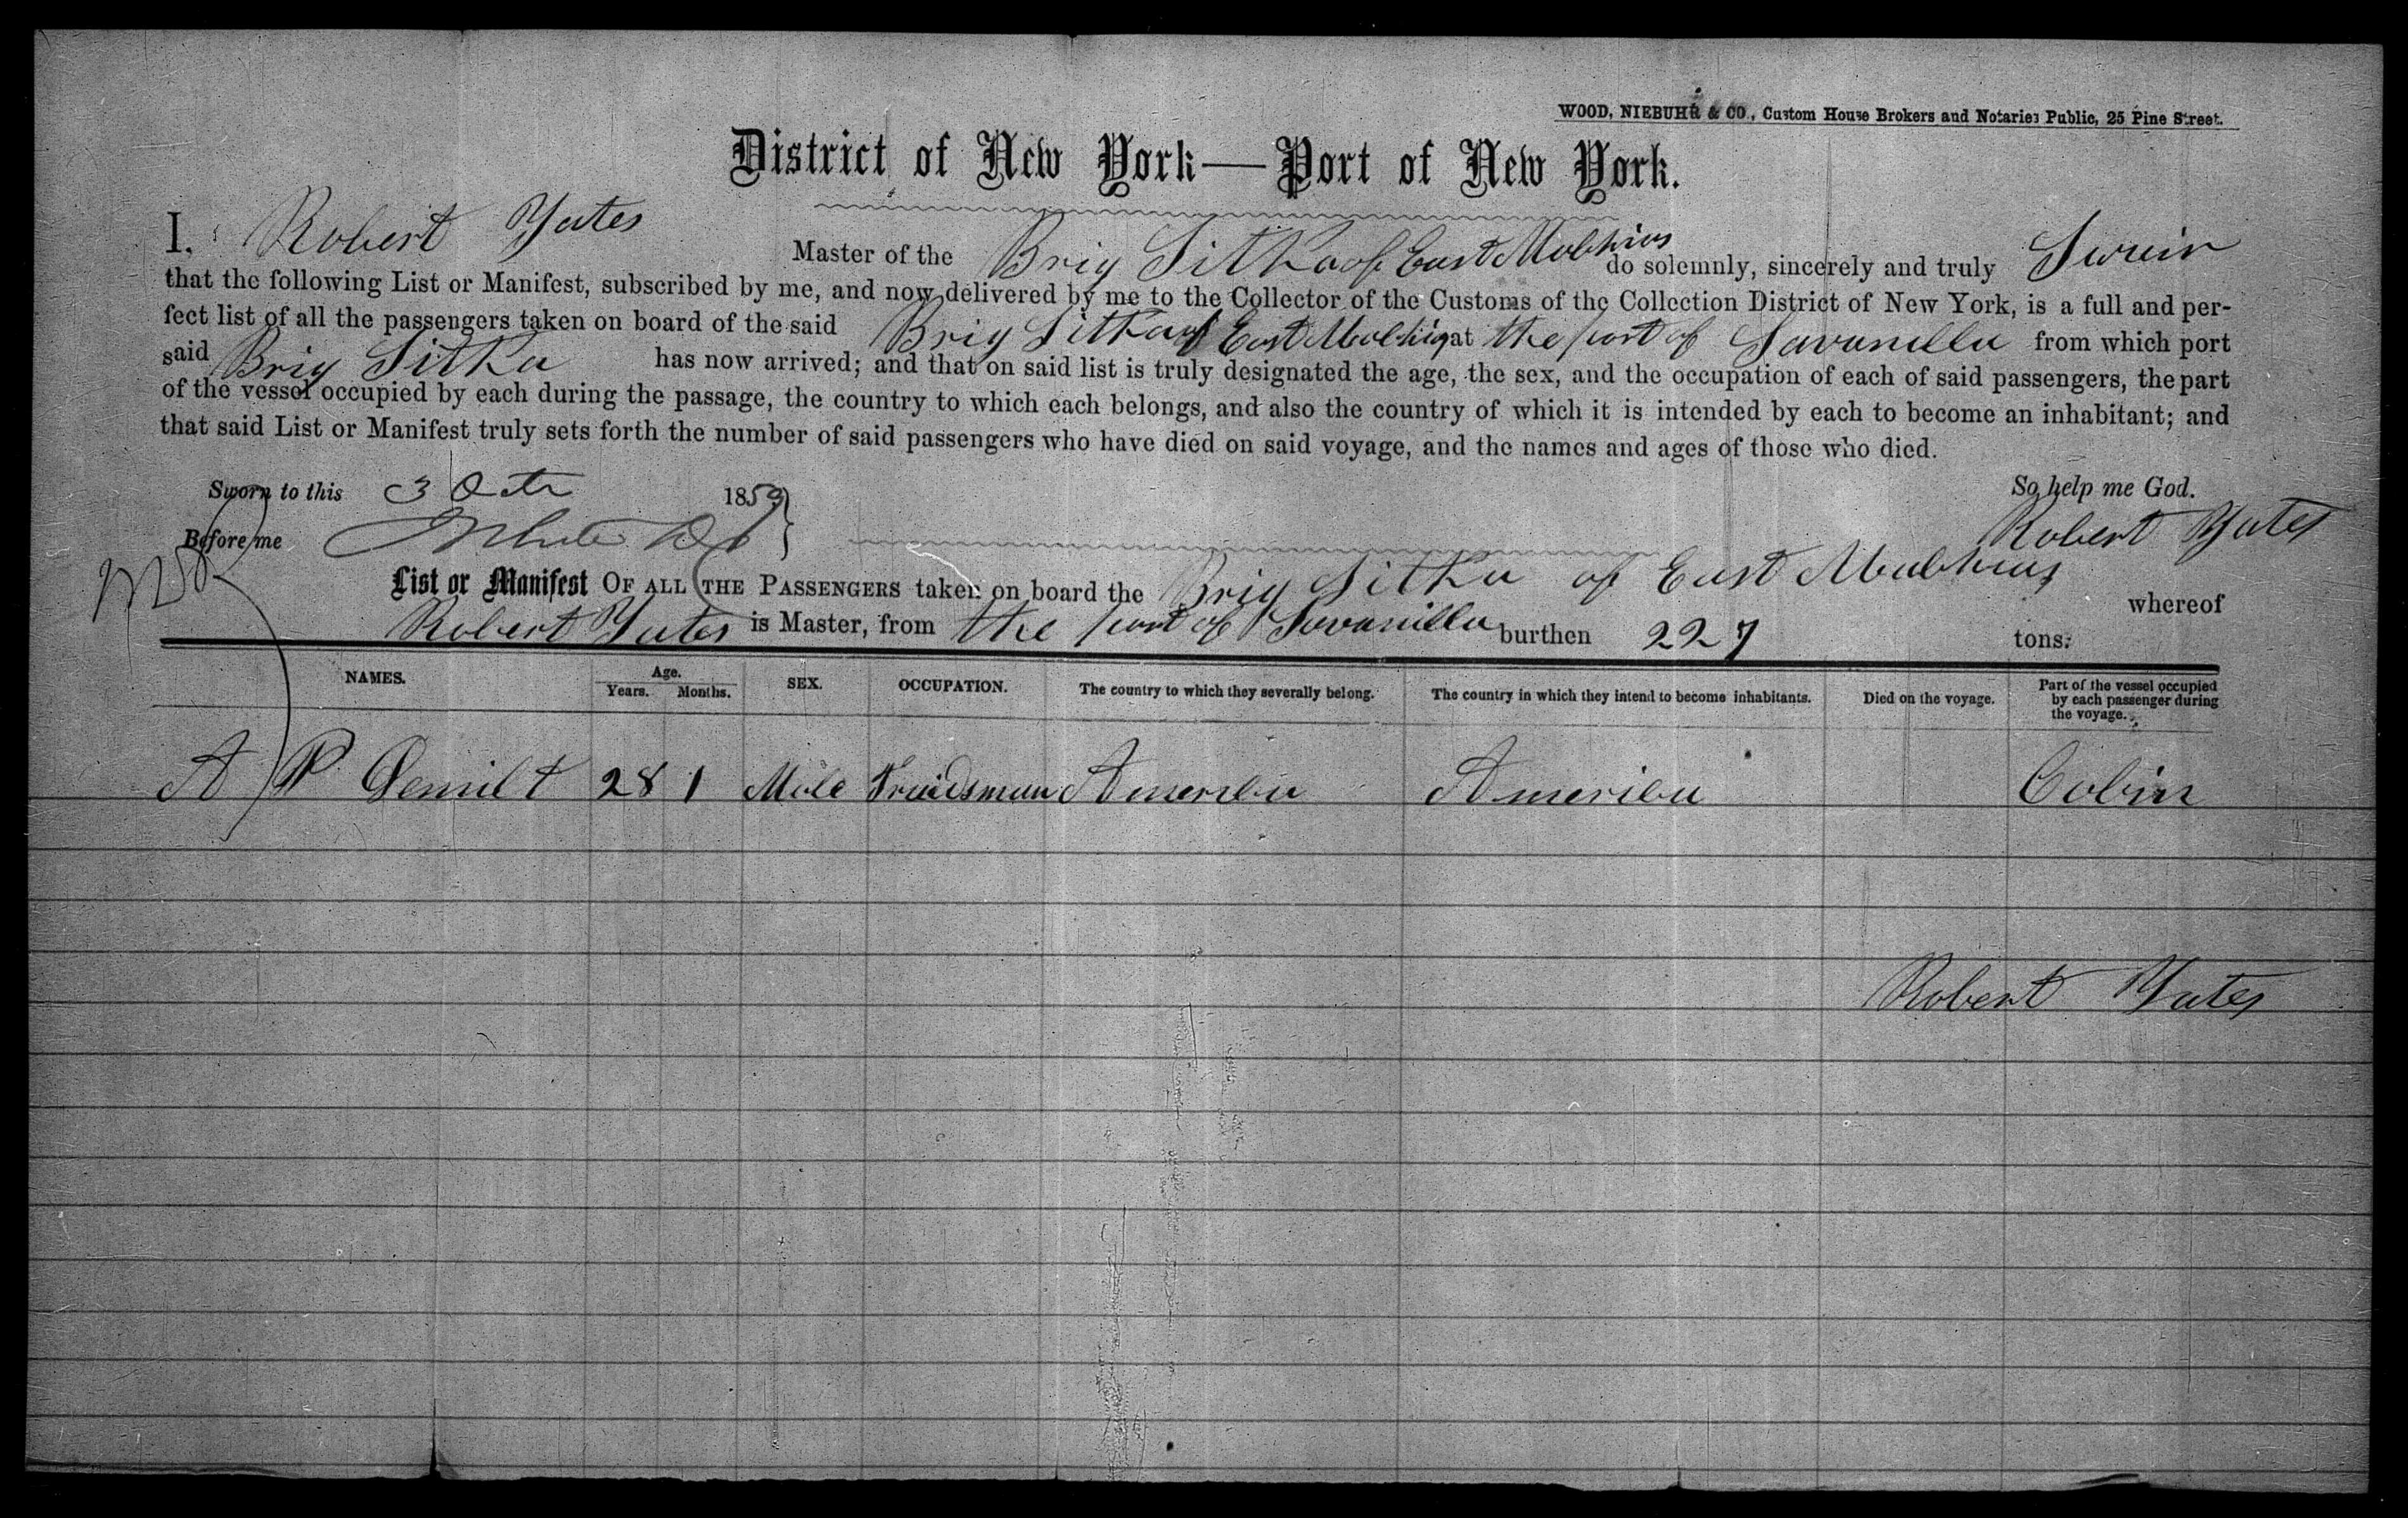 WOOD, NIEBUHR & CO., Custom House Brokers and Notaries Public, 25 Pine Street.
District of New York—Port of New York.
I, Robert Yates Master of the Brig Sitka of East Machias do solemnly, sincerely and truly Swear
that the following List or Manifest, subscribed by me, and now delivered by me to the Collector of the Customs of the Collection District of New York, is a full and per-
fect list of all the passengers taken on board of the said Brig Sitka of East Machias at the port of Savanilla from which port
said Brig Sitka has now arrived; and that on said list is truly designated the age, the sex, and the occupation of each of said passengers, the part
of the vessel occupied by each during the passage, the country to which each belongs, and also the country of which it is intended by each to become an inhabitant; and
that said List or Manifest truly sets forth the number of said passengers who have died on said voyage, and the names and ages of those who died.
Sworn to this 3 Octr 1859 So help me God.
Before me Robert Yates
List or Manifest OF ALL THE PASSENGERS taken on board the Brig Sitka of East Machias whereof
Robert Yates is Master, from the port of Savanilla burthen 227 tons.
NAMES. Age. Years. Months. SEX. OCCUPATION. The country to which they severally belong. The country in which they intend to become inhabitants. Died on the voyage. Part of the vessel occupied by each passenger during the voyage.
A P Demilt 28 1 Male Traidsman America America Cabin
Robert Yates